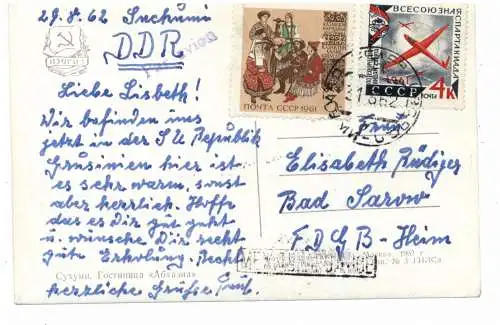 29.8.62 Suchumi
DDR
PAR AVION
Liebe Lisbeth!
Wir befinden uns
jetzt in der SU Republik
Grusinien hier ist
es sehr warm, sonst
aber herrlich. Hoffe
das es Dir gut geht
u. wünsche Dir recht
gute Erholung. Recht
herzliche Grüße
Сухуми. Гостиница «Абхазия»
ПОЧТА СССР 1961
ВСЕСОЮЗНАЯ
СПАРТАКИАДА
1961
СССР
ПОЧТА
4к
Frau
Elisabeth Rüdiger
Bad Sarow
F.D.G.B-Heim
МЕЖДУНАРОДНОЕ
Москва, 196